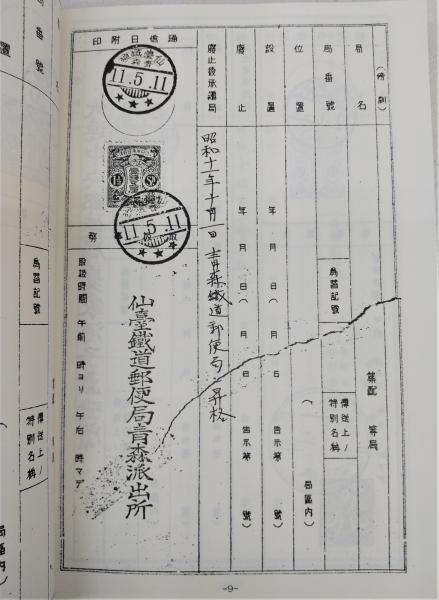 (特別)
局名
集配 等局
局番號
為替記號
傳送上ノ特別名稱
位置
(局區内)
設置
年 月 日( 月 日 告示第 號)
廢止
年 月 日( 月 日 告示第 號)
廢止後承繼局
昭和十一年十月一日青森鐵道郵便局ニ昇格
通信日附印
仙臺鐵郵
青森
11.5.11
11.5.11
仙臺鐵道郵便局青森派出所
務
時間 午前 時ヨリ 午后 時マデ
局番號
位置
為替記號
傳送上ノ特別名稱
局區内)
-9-